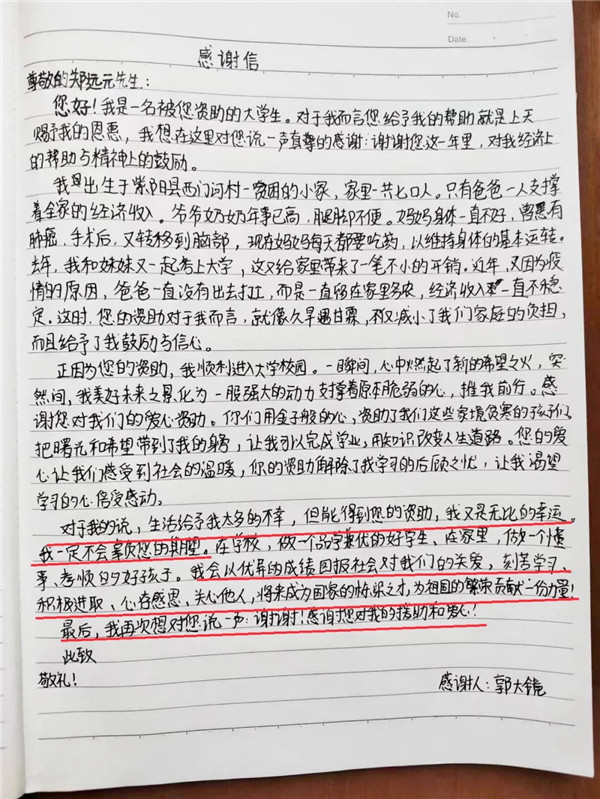 No.
Date.
感谢信
尊敬的郑远元先生：
您好！我是一名被您资助的大学生。对于我而言您给予我的帮助就是上天
赐予我的恩惠，我想在这里对您说一声真挚的感谢：谢谢您这一年里，对我经济上
的帮助与精神上的鼓励。
我出生于紫阳县西门河村一贫困的小家，家里一共七口人。只有爸爸一人支撑
着全家的经济收入。爷爷奶奶年事已高，腿脚不便。妈妈身体一直不好，曾患有
肺癌，手术后，又转移到脑部，现在妈妈每天都要吃药，以维持身体的基本运转。
去年，我和妹妹又一起考上大学，这又给家里带来了一笔不小的开销。近年，又因为疫
情的原因，爸爸一直没有出去打工，而是一直留在家里务农，经济收入一直不稳
定。这时，您的资助对于我而言，就像久旱遇甘霖，不仅减小了我们家庭的负担，
而且给予了我鼓励与信心。
正因为您的资助，我顺利进入大学校园。一瞬间，心中燃起了新的希望之火，突
然间，我美好未来之景化为一股强大的动力支撑着原本脆弱的心，推我前行。感
谢您对我们的爱心资助。你们用金子般的心，资助了我们这些家境贫寒的孩子们，
把曙光和希望带到了我的身旁，让我可以完成学业，用知识改变人生道路。您的爱
心让我们感受到社会的温暖，你的资助解除了我学习的后顾之忧，让我渴望
学习的心倍受感动。
对于我的说，生活给予我太多的不幸，但能得到您的资助，我又是无比的幸运。
我一定不会辜负您的期望。在学校，做一个品学兼优的好学生、在家里，做一个懂
事、孝顺的好孩子。我会以优异的成绩回报社会对我们的关爱，刻苦学习、
积极进取、心存感恩、关心他人，将来成为国家的栋梁之才，为祖国的繁荣贡献一份力量！
最后，我再次想对您说一声：谢谢！感谢您对我的援助和爱心！
此致
敬礼！
感谢人：郭大镜